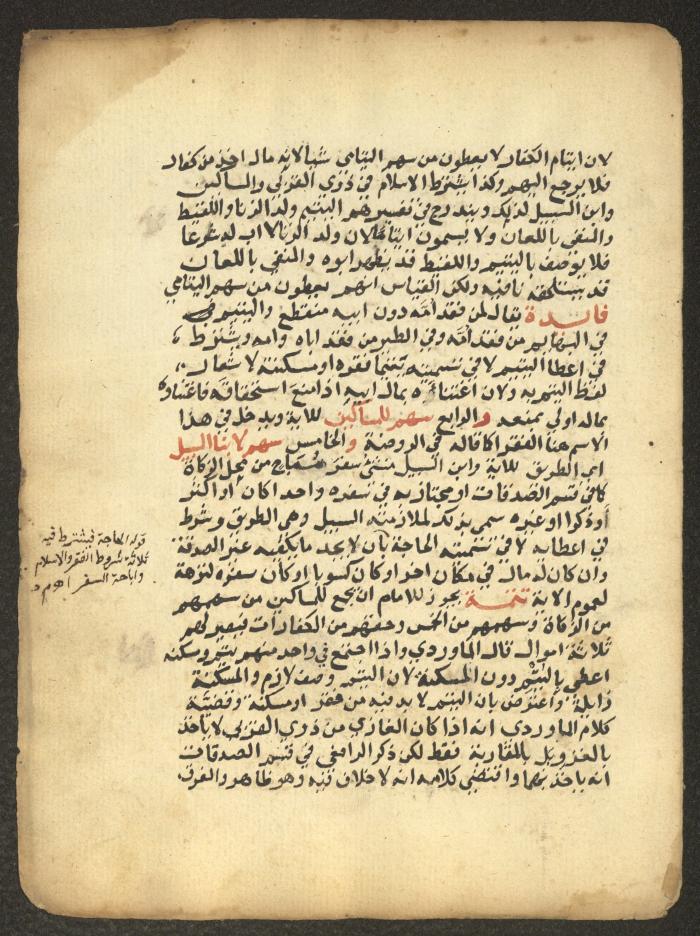 لان ايتام الكفار لا يعطون من سهم اليتامى شيا لانه مال اخذ من كفار
فلا يرجع اليهم وكذا يشترط الاسلام في ذوي القربى والمساكين
وابن السبيل لذلك ويندرج في تفسيرهم اليتيم ولد الزنا واللقيط
والمنفي باللعان ولا يسمون ايتاما لان ولد الزنا لا اب له شرعا
فلا يوصف باليتيم واللقيط قد يظهر ابوه والمنفي باللعان
قد يستلحقه نافيه ولكن القياس انهم يعطون من سهم اليتامى
فائدة يقال لمن فقد امه دون ابيه منقطع واليتيم في
في البهائم من فقد امه وفي الطير من فقد اباه وامه ويشترط
في اعطا اليتيم لا في تسميته يتيما فقره او مسكنته لاشعار
لفظ اليتم به ولان اغتناءه بمال ابيه اذا منع استحقاقه فاغتناوه
بماله اولى بمنعه والرابع سهم للمساكين للاية ويدخل في هذا
الاسم هنا الفقرا كما قاله في الروضة والخامس سهم لابنا السبيل
اي الطريق للاية وابن السبيل منشئ سفر مباح من محل الزكاة
كما في قسم الصدقات او مجتاز به في سفره واحدا كان او اكثر
او ذكرا او غيره سمي بذلك لملازمته السبيل وهي الطريق وشرط
في اعطايه لا في تسميته الحاجة بان لا يجد ما يكفيه غير الصدقة
وان كان له مال في مكان اخر او كان كسوبا او كان سفره لنزهة
لعموم الاية تتمة يجوز للامام ان يجمع للمساكين من سهمهم
من الزكاة وسهمهم من الخمس وحقهم من الكفارات فيصير لهم
ثلاثة اموال قال الماوردي واذا اجتمع في واحد منهم يتم ومسكنة
اعطي باليتم دون المسكنة لان اليتم وصف لازم والمسكنة
زايلة واعترض بان اليتم لا بد فيه من فقر او مسكنة وقضية
كلام الماوردي انه اذا كان الغازي من ذوي القربى لا ياخذ
بالغزو بل بالقرابة فقط لكن ذكر الرافعي في قسم الصدقات
انه ياخذ بهما واقتضى كلامه انه لا خلاف فيه وهو ظاهر والفرق
قوله الحاجة فيشترط فيه
ثلاثة شروط الفقر والاسلام
واباحة السفر اهـ م د